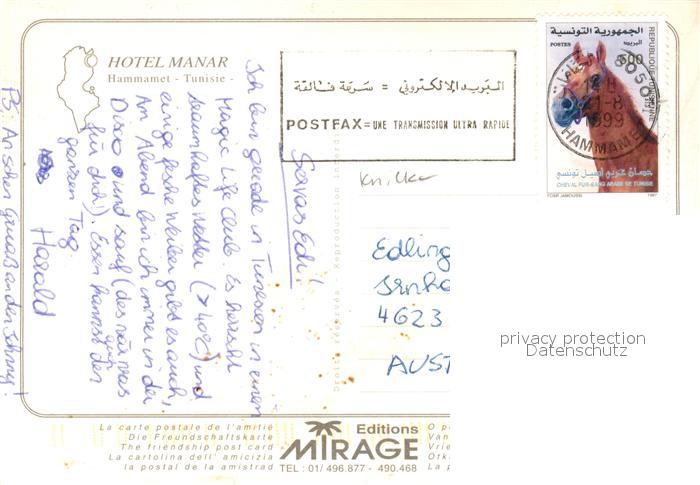 HOTEL MANAR
Hammamet - Tunisie -
البريد الإلكتروني = سرعة فائقة
POSTFAX = UNE TRANSMISSION ULTRA RAPIDE
الجمهورية التونسية
POSTES
البريد
500
REPUBLIQUE TUNISIENNE
8050
21-8
1999
HAMMAMET
حصان عربي أصيل تونسي
CHEVAL PUR-SANG ARABE DE TUNISIE
YOSR JAMOUSSI
1997
Knicke
Servas Edi!
Ich bin gerade in Tunesien in einem
Magic Life Club. Es herrscht
traumhaftes Wetter (>40°C) und
einige fesche Weiber gibt es auch,
Am Abend bin ich immer in der
Disco und sauf (des wär was
für dich). Essen kannst den
ganzen Tag.
Harald
PS: An schen Gruaß an den Johnny!
Edling
4623
AUST
privacy protection
Datenschutz
La carte postale de l'amitié
Die Freundschaftskarte
The friendship post card
La cartolina dell' amicizia
la postal de la amistad
Editions
MIRAGE
TEL : 01/ 496.877 - 490.468